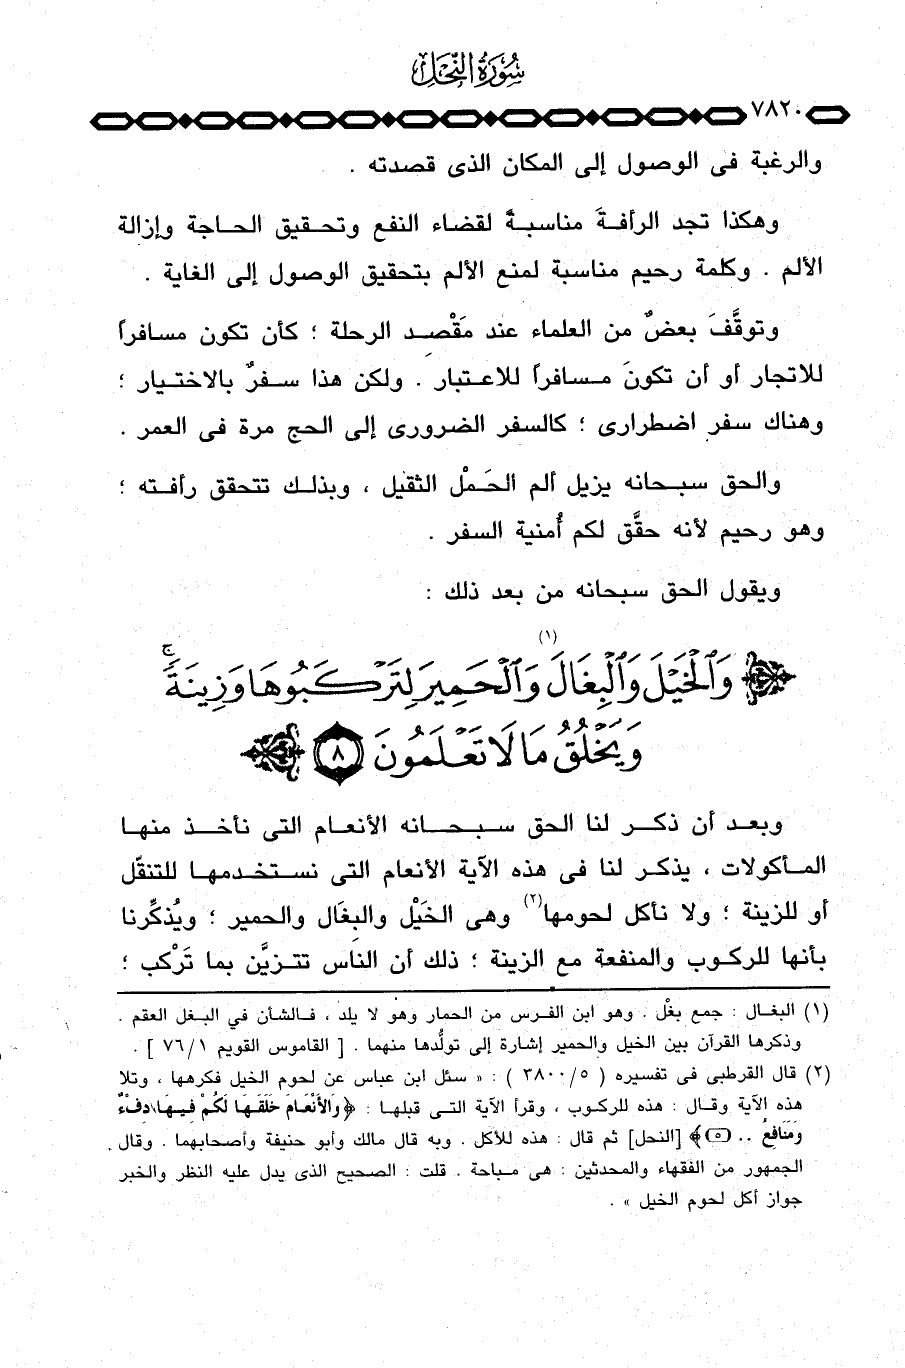 سُورَةُ النَّحْلِ
٧٨٢٠
والرغبة فى الوصول إلى المكان الذى قصدته .
وهكذا تجد الرأفةَ مناسبةً لقضاء النفع وتحقيق الحاجة وإزالة
الألم . وكلمة رحيم مناسبة لمنع الألم بتحقيق الوصول إلى الغاية .
وتوقَّفَ بعضٌ من العلماء عند مَقْصِد الرحلة ؛ كأن تكون مسافراً
للاتجار أو أن تكونَ مسافراً للاعتبار . ولكن هذا سفرٌ بالاختيار ؛
وهناك سفر اضطرارى ؛ كالسفر الضرورى إلى الحج مرة فى العمر .
والحق سبحانه يزيل ألم الحَمْل الثقيل ، وبذلك تتحقق رأفته ؛
وهو رحيم لأنه حقَّق لكم أُمنية السفر .
ويقول الحق سبحانه من بعد ذلك :
وَالْخَيْلَ وَالْبِغَالَ (١) وَالْحَمِيرَ لِتَرْكَبُوهَا وَزِينَةً ۚ
وَيَخْلُقُ مَا لَا تَعْلَمُونَ ٨
وبعد أن ذكر لنا الحق سبحانه الأنعام التى نأخذ منها
المأكولات ، يذكر لنا فى هذه الآية الأنعام التى نستخدمها للتنقّل
أو للزينة ؛ ولا نأكل لحومها(٢) وهى الخَيْل والبِغَال والحمير ؛ ويُذكِّرنا
بأنها للركوب والمنفعة مع الزينة ؛ ذلك أن الناس تتزيَّن بما تَرْكب ؛
(١) البغال : جمع بغْل . وهو ابن الفرس من الحمار وهو لا يلد ، فالشأن في البغل العقم .
وذكرها القرآن بين الخيل والحمير إشارة إلى تولُّدها منهما . [ القاموس القويم ٧٦/١ ] .
(٢) قال القرطبى فى تفسيره ( ٣٨٠٠/٥ ) : « سئل ابن عباس عن لحوم الخيل فكرهها ، وتلا
هذه الآية وقال : هذه للركوب ، وقرأ الآية التى قبلها : ﴿وَالأَنْعَامَ خَلَقَهَا لَكُمْ فِيهَا دِفْءٌ
وَمَنَافِعُ .. ٥﴾ [النحل] ثم قال : هذه للأكل . وبه قال مالك وأبو حنيفة وأصحابهما . وقال
الجمهور من الفقهاء والمحدثين : هى مباحة . قلت : الصحيح الذى يدل عليه النظر والخبر
جواز أكل لحوم الخيل » .